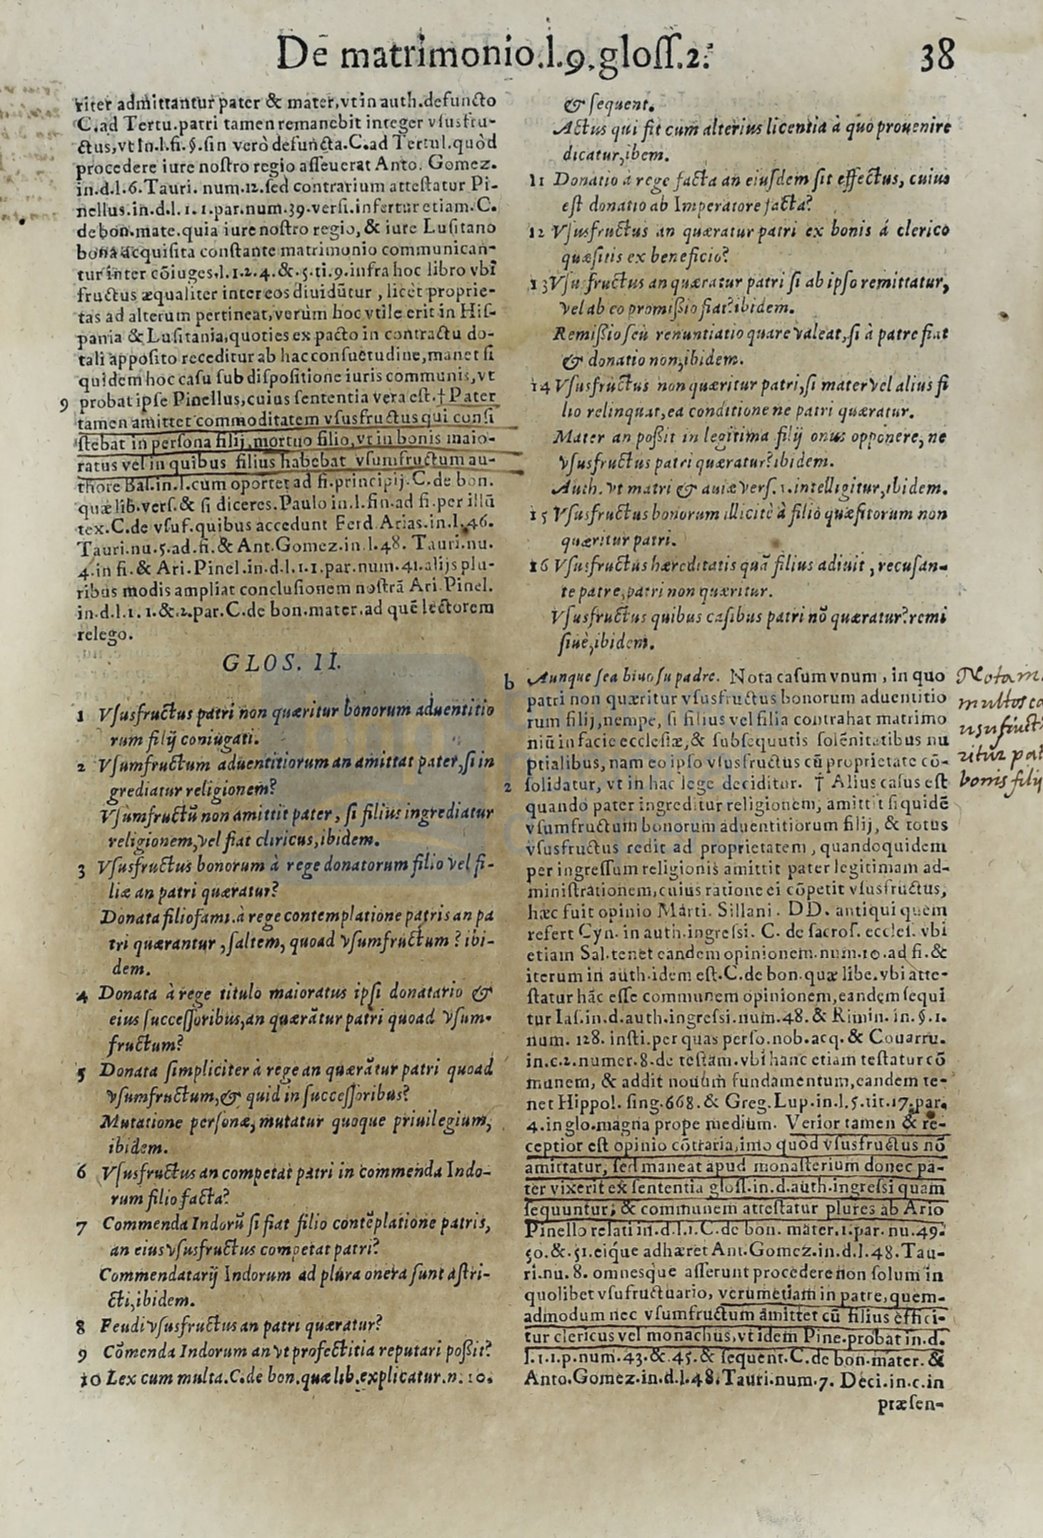 De matrimonio.l.9.gloſſ.2. 38
riter admittantur pater & mater,vt in auth.defuncto
C.ad Tertu.patri tamen remanebit integer vſusfru-
ctus,vt In.l.fi.§.ſin verò defuncta.C.ad Tertul.quòd
procedere iure noſtro regio aſſeuerat Anto. Gomez.
in.d.l.6.Tauri. num.12.ſed contrarium atteſtatur Pi-
nellus.in.d.l.1.1.par.num.39.verſi.infertur etiam.C.
de bon.mate.quia iure noſtro regio,& iure Luſitano
bona acquiſita conſtante matrimonio communican-
tur inter cōiuges.l.1.2.4.&.5.ti.9.infra hoc libro vbi
fructus æqualiter inter eos diuidūtur , licèt proprie-
tas ad alterum pertineat,verùm hoc vtile erit in Hiſ-
pania & Luſitania,quoties ex pacto in contractu do-
tali appoſito receditur ab hac conſuetudine,manet ſi
quidem hoc caſu ſub diſpoſitione iuris communis,vt
9 probat ipſe Pinellus,cuius ſententia vera eſt.† Pater
tamen amittet commoditatem vſusfructus qui conſi
ſtebat in perſona filij,mortuo filio,vt in bonis maio-
ratus vel in quibus filius habebat vſumfructum au-
thore Bal.in.l.cum oportet ad fi.principij.C.de bon.
quæ lib.verſ.& ſi diceres.Paulo in.l.fin.ad fi.per illū
tex.C.de vſuf.quibus accedunt Ferd.Arias.in.l.46.
Tauri.nu.5.ad.fi.& Ant.Gomez.in.l.48. Tauri.nu.
4.in fi.& Ari.Pinel.in.d.l.1.1.par.num.41.alijs plu-
ribus modis ampliat concluſionem noſtrā Ari.Pinel.
in.d.l.1.1.&.2.par.C.de bon.mater.ad quē lectorem
relego.
GLOS. II.
1 Vſusfructus patri non quæritur bonorum aduentitio
rum filij coniugati.
2 Vſumfructum aduentitiorum an amittat pater,ſi in
grediatur religionem?
Vſumfructū non amittit pater, ſi filius ingrediatur
religionem,vel fiat clericus,ibidem.
3 Vſusfructus bonorum à rege donatorum filio vel fi-
liæ an patri quæratur?
Donata filiofami.à rege contemplatione patris an pa
tri quærantur ,ſaltem, quoad vſumfructum ? ibi-
dem.
4 Donata à rege titulo maioratus ipſi donatario &
eius ſucceſſoribus,an quærātur patri quoad vſum-
fructum?
5 Donata ſimpliciter à rege an quærātur patri quoad
vſumfructum,& quid in ſucceſſoribus?
Mutatione perſonæ, mutatur quoque priuilegium,
ibidem.
6 Vſusfructus an competat patri in commenda Indo-
rum filio facta?
7 Commenda Indorū ſi fiat filio contēplatione patris,
an eius vſusfructus competat patri?
Commendatarij Indorum ad plura onera ſunt aſtri-
cti,ibidem.
8 Feudi vſusfructus an patri quæratur?
9 Cōmenda Indorum an vt profectitia reputari poßit?
10 Lex cum multa.C.de bon.quæ lib.explicatur.n.10.
& ſequent.
Actus qui fit cum alterius licentia à quo prouenire
dicatur,ibem.
11 Donatio à rege facta an eiuſdem ſit effectus, cuius
eſt donatio ab Imperatore facta?
12 Vſusfructus an quæratur patri ex bonis à clerico
quæſitis ex beneficio?
13 Vſusfructus an quæratur patri ſi ab ipſo remittatur,
vel ab eo promißio fiat?ibidem.
Remißio ſeu renuntiatio quare valeat,ſi à patre fiat
& donatio non,ibidem.
14 Vſusfructus non quæritur patri,ſi mater vel alius fi
lio relinquat,ea conditione ne patri quæratur.
Mater an poßit in legitima filij onus opponere, ne
vſusfructus patri quæratur?ibidem.
Auth.vt matri & auiæ verſ.1.intelligitur,ibidem.
15 Vſusfructus bonorum illicitè à filiò quæſitorum non
quæritur patri.
16 Vſusfructus hæreditatis quā filius adiuit , recuſan-
te patre,patri non quæritur.
Vſusfructus quibus caſibus patri nō quæratur?remi
ſiuè,ibidem.
b Aunque ſea biuo ſu padre. Nota caſum vnum , in quo
patri non quæritur vſusfructus bonorum aduentitio
rum filij,nempe, ſi filius vel filia contrahat matrimo
niū in facie eccleſiæ,& ſubſequutis ſolēnitatibus nu
ptialibus,nam eo ipſo vſusfructus cū proprietate cō-
2 ſolidatur, vt in hac lege deciditur. † Alius caſus eſt
quando pater ingreditur religionem, amittit ſiquidē
vſumfructum bonorum aduentitiorum filij, & totus
vſusfructus redit ad proprietatem , quandoquidem
per ingreſſum religionis amittit pater legitimam ad-
miniſtrationem,cuius ratione ei cōpetit vſusfructus,
hæc fuit opinio Marti. Sillani. DD. antiqui quem
refert Cyn. in auth.ingreſsi. C. de ſacroſ. eccleſ. vbi
etiam Sal.tenet eandem opinionem.num.10.ad fi.&
iterum in auth.idem eſt.C.de bon.quæ libe.vbi atte-
ſtatur hāc eſſe communem opinionem,eandem ſequi
tur Iaſ.in.d.auth.ingreſsi.num.48.& Rimin. in.§.1.
num. 128. inſti.per quas perſo.nob.acq.& Couarru.
in.c.2.numer.8.de teſtam.vbi hanc etiam teſtatur cō
munem, & addit nouum fundamentum,eandem te-
net Hippol. ſing.668.& Greg.Lup.in.l.5.tit.17.par.
4.in glo.magna prope medium. Verior tamen & re-
ceptior eſt opinio cōtraria,imo quod vſusfructus nō
amittatur, ſed maneat apud monaſterium donec pa-
ter vixerit ex ſententia gloſſ.in.d.auth.ingreſsi quam
ſequuntur, & communem atteſtatur plures ab Ario
Pinello relati in.d.l.1.C.de bon. mater.1.par.nu.49.
50.&.51.eiq́ue adhæret Ant.Gomez.in.d.l.48.Tau-
ri.nu.8. omnesque aſſerunt procedere non ſolum in
quolibet vſufructuario, verumetiam in patre,quem-
admodum nec vſumfructum amittet cū filius effici-
tur clericus vel monachus,vt idem Pine.probat in.d.
l.1.1.p.num.43.&.45.& ſequent.C.de bon.mater. &
Anto.Gomez.in.d.l.48.Tauri.num.7. Deci.in.c.in
præſen-
Notam.
multos ca
usufructi
bonis filij